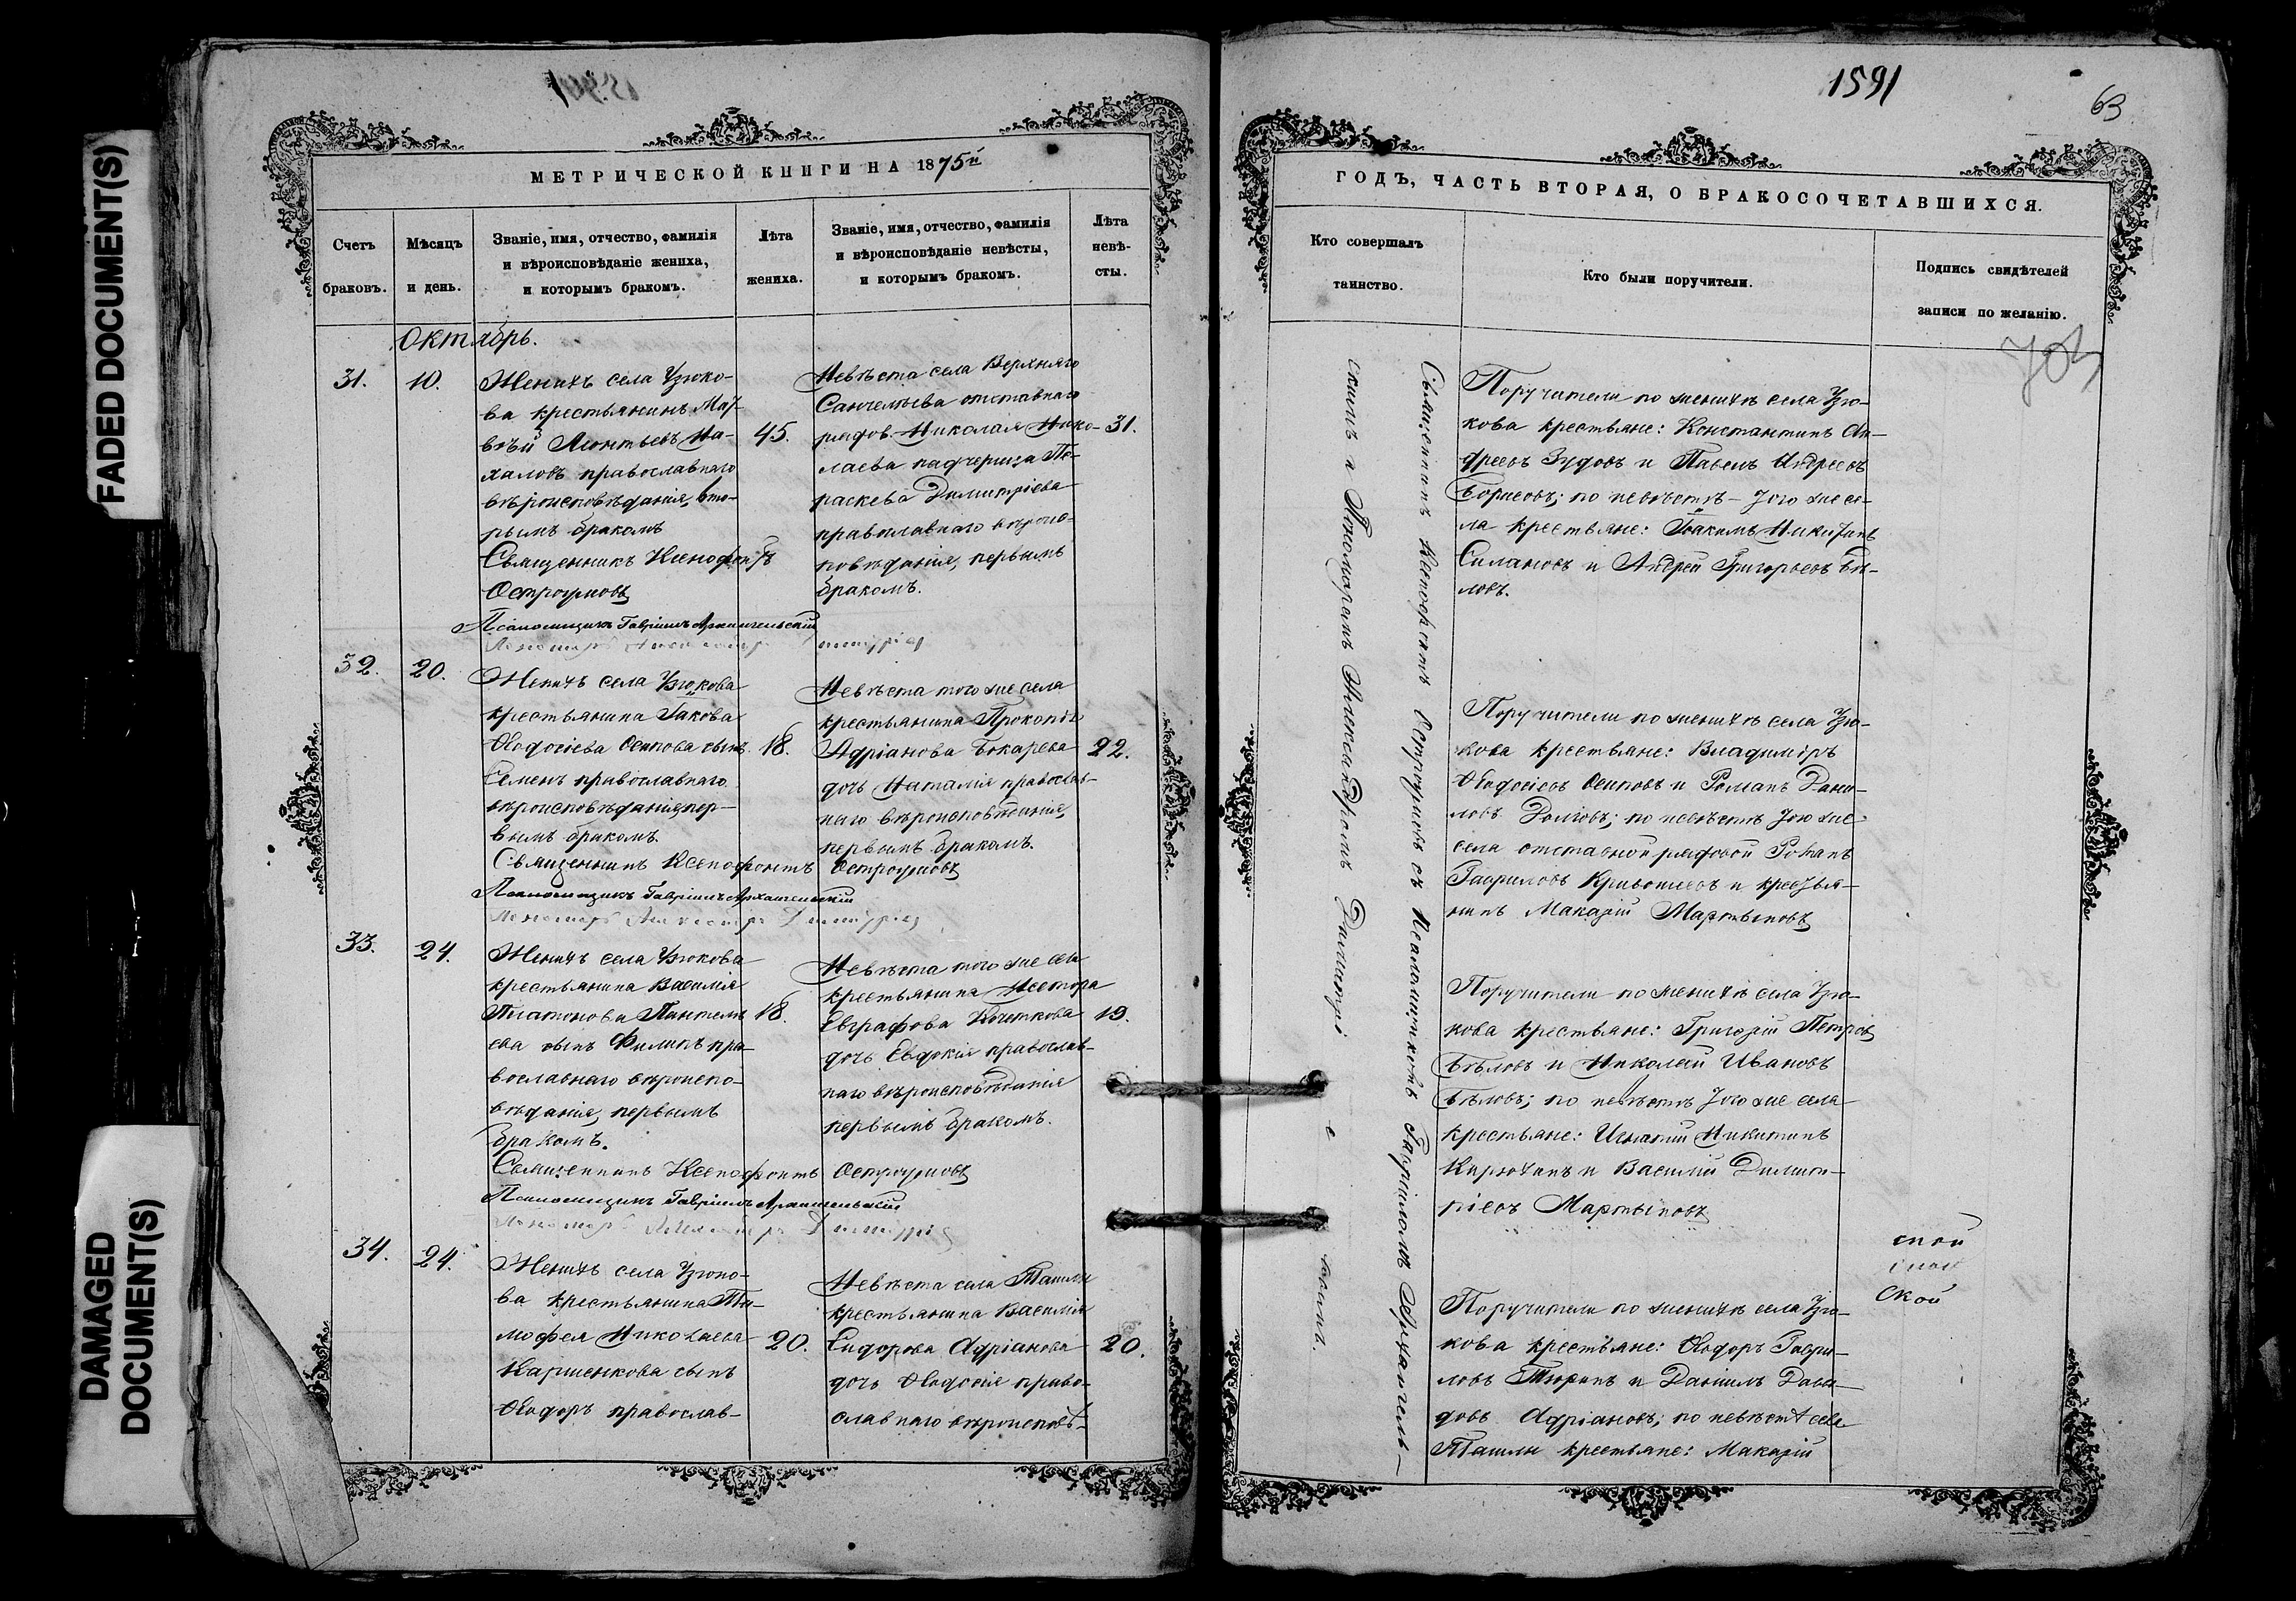 FADED DOCUMENT(S)
DAMAGED
DOCUMENT(S)
МЕТРИЧЕСКОЙ КНИГИ НА 1875й
Счетъ
браковъ.
Мѣсяцъ
и день.
Званіе, имя, отчество, фамилія
и вѣроисповѣданіе жениха,
и которымъ бракомъ.
Лѣта
жениха.
Званіе, имя, отчество, фамилія
и вѣроисповѣданіе невѣсты,
и которымъ бракомъ.
Лѣта
невѣ-
сты.
Октябрь.
31.
10.
Женихъ села Узюко-
ва крестьянинъ Мат-
вѣй Леонтьевъ
православнаго
вѣроисповѣданія, вто-
рымъ бракомъ
Священникъ Ксенофонтъ
Остроумовъ
Псаломщикъ Гавріилъ Архангельскій
45.
Невѣста села Верхняго
Санчелѣева отставнаго
рядов. Николая Нико-
лаева падчерица Па-
раскева Димитріева
православнаго вѣроис-
повѣданія, первымъ
бракомъ.
31.
32.
20.
Женихъ села Узюкова
крестьянина Іакова
Ѳеодосіева Осипова сынъ
Семенъ православнаго
вѣроисповѣданія, пер-
вымъ бракомъ.
Священникъ Ксенофонтъ Остроумовъ
Псаломщикъ Гавріилъ Архангельскій
18.
Невѣста того же села
крестьянина Прокопія
Адріанова Бокарева
дочь Наталія православ-
наго вѣроисповѣданія,
первымъ бракомъ.
22.
33.
24.
Женихъ села Узюкова
крестьянина Василія
Платонова Пантеле-
ева сынъ Филипъ пра-
вославнаго вѣроиспо-
вѣданія, первымъ
бракомъ.
Священникъ Ксенофонтъ Остроумовъ
Псаломщикъ Гавріилъ Архангельскій
18.
Невѣста того же села
крестьянина Нестора
Евграфова Кочеткова
дочь Евдокія православ-
наго вѣроисповѣданія
первымъ бракомъ.
19.
34.
24.
Женихъ села Узюко-
ва крестьянина Ти-
мофея Николаева
Каршенкова сынъ
Ѳеодоръ православ-
20.
Невѣста села Ташлы
крестьянина Василія
Сидорова Адріанова
дочь Ѳеодосія право-
славнаго вѣроисповѣ-
20.
1591
63
ГОДЪ, ЧАСТЬ ВТОРАЯ, О БРАКОСОЧЕТАВШИХСЯ.
Кто совершалъ
таинство.
Кто были поручители.
Подпись свидѣтелей
записи по желанію.
Священникъ Ксенофонтъ Остроумовъ съ Псаломщикомъ Гавріиломъ Архангель-
скимъ и Пономаремъ Александромъ
Поручители по женихѣ села Узю-
кова крестьяне: Константинъ Ан-
дреевъ Зудовъ и Павелъ Андреевъ
Борисовъ; по невѣстѣ - того же се-
ла крестьяне: Іоакимъ Никитинъ
Силановъ и Андрей Григорьевъ Бѣ-
ловъ.
Поручители по женихѣ села Узю-
кова крестьяне: Владиміръ
Ѳеодосіевъ Осиповъ и Романъ Дани-
ловъ Долговъ; по невѣстѣ того же
села отставной рядовой Романъ
Гавриловъ и крестья-
нинъ Макарій Мартыновъ
Поручители по женихѣ села Узю-
кова крестьяне: Григорій Петровъ
Бѣловъ и Николай Ивановъ
Бѣловъ; по невѣстѣ того же села
крестьяне: Игнатій Никитинъ
Кирюхинъ и Василій Димит-
ріевъ Мартыновъ
Поручители по женихѣ села Узю-
кова крестьяне: Ѳеодоръ Гаври-
ловъ Тюринъ и Даніилъ Давы-
довъ Адріановъ; по невѣстѣ села
Ташлы крестьяне: Макарій
ской